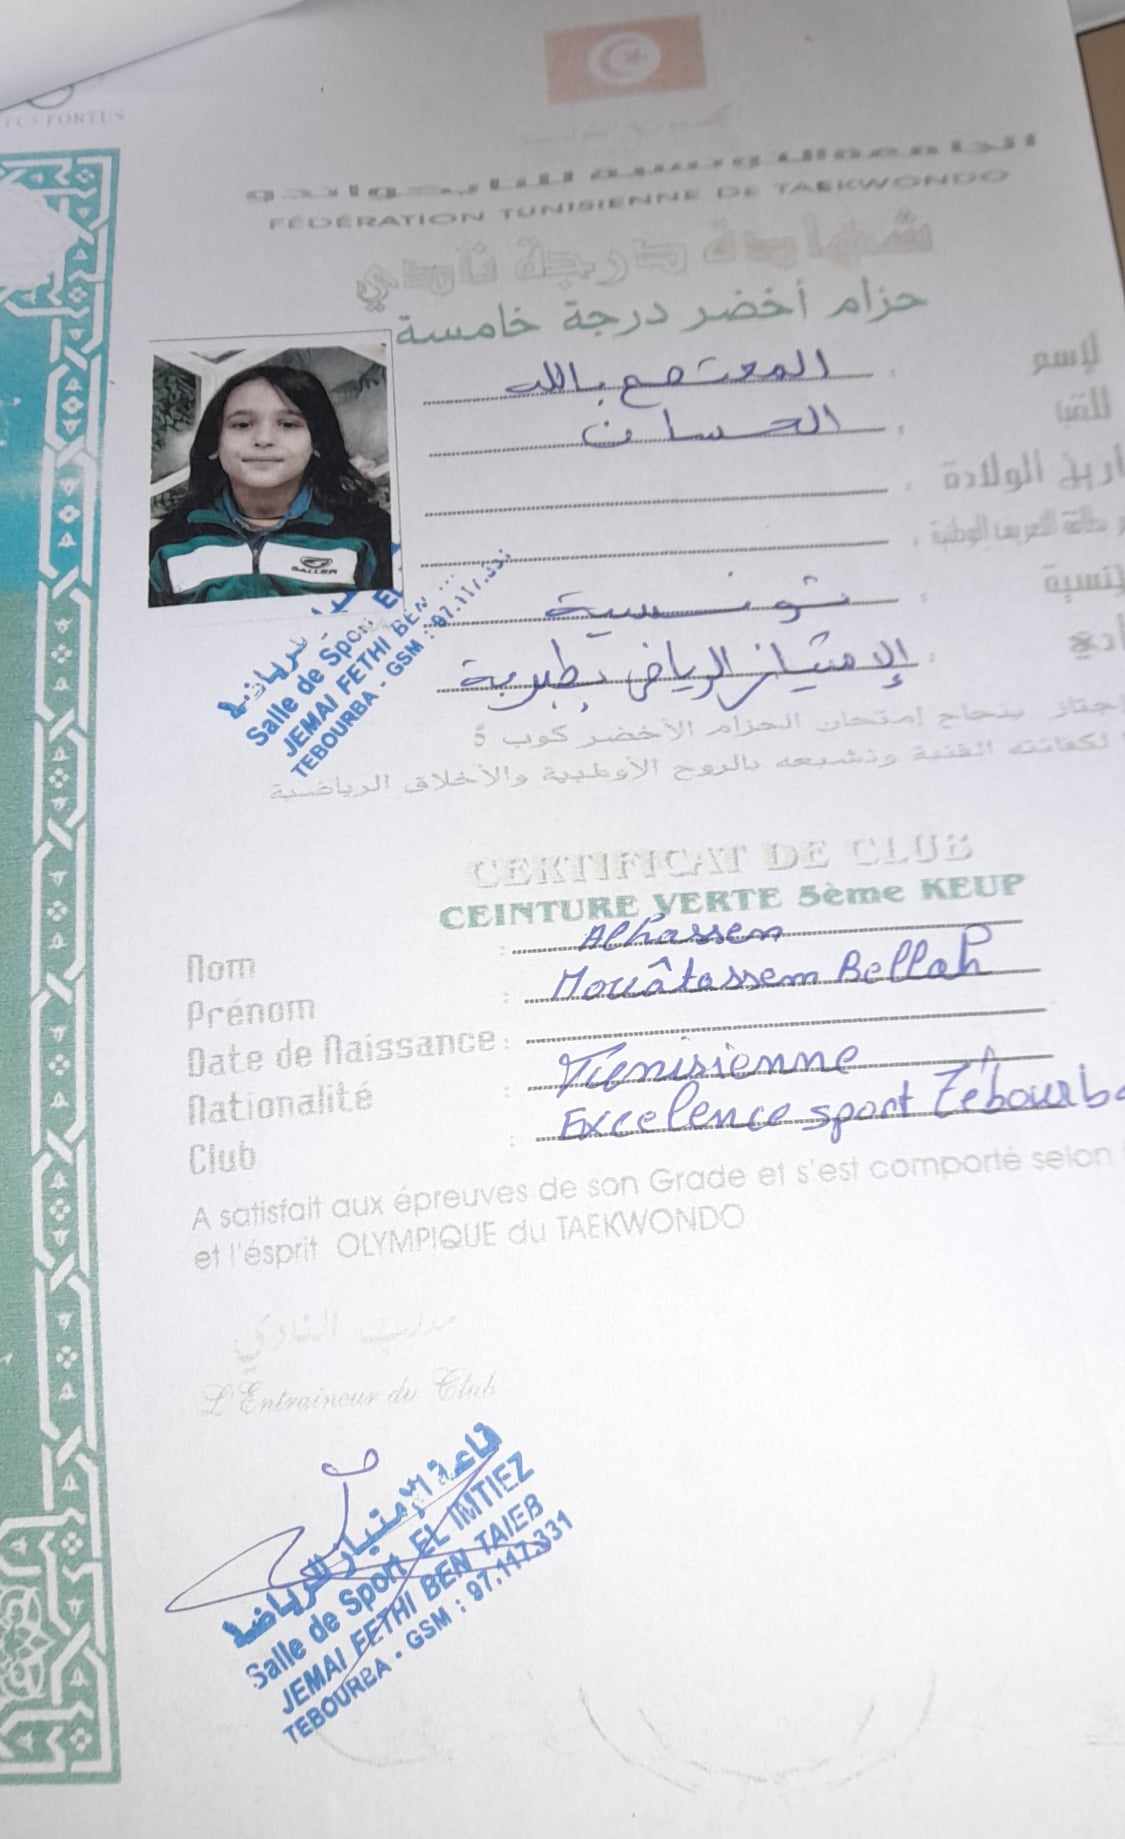 الجامعة التونسية للتايكواندو
FÉDÉRATION TUNISIENNE DE TAEKWONDO
شهادة درجة نادي
حزام أخضر درجة خامسة
لإسم : المعتصم بالله
للقب : الحسان
اريخ الولادة :
بطاقة التعريف الوطنية :
نسية : تونسية
ادي : الإمتياز الرياضي بطبربة
إجتاز بنجاح إمتحان الحزام الأخضر كوب 5
لكفائته الفنية وتشبعه بالروح الأولمبية والأخلاق الرياضية
SALLER
Salle de Sport EL
JEMAI FETHI BEN
TEBOURBA - GSM : 97.117.331
CERTIFICAT DE CLUB
CEINTURE VERTE 5ème KEUP
Nom : Alhassen
Prénom : Mouâtassem Bellah
Date de Naissance :
Nationalité : Tunisienne
Club : Excelence sport Tébourba
A satisfait aux épreuves de son Grade et s'est comporté selon
et l'ésprit OLYMPIQUE du TAEKWONDO
مدرب النادي
L'Entraineur du Club
قاعة الإمتياز للرياضة
Salle de Sport EL IMTIEZ
JEMAI FETHI BEN TAIEB
TEBOURBA - GSM : 97.117.331